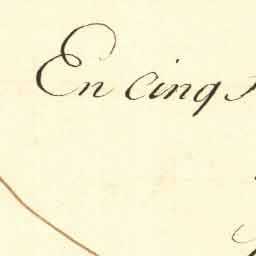 En cinq